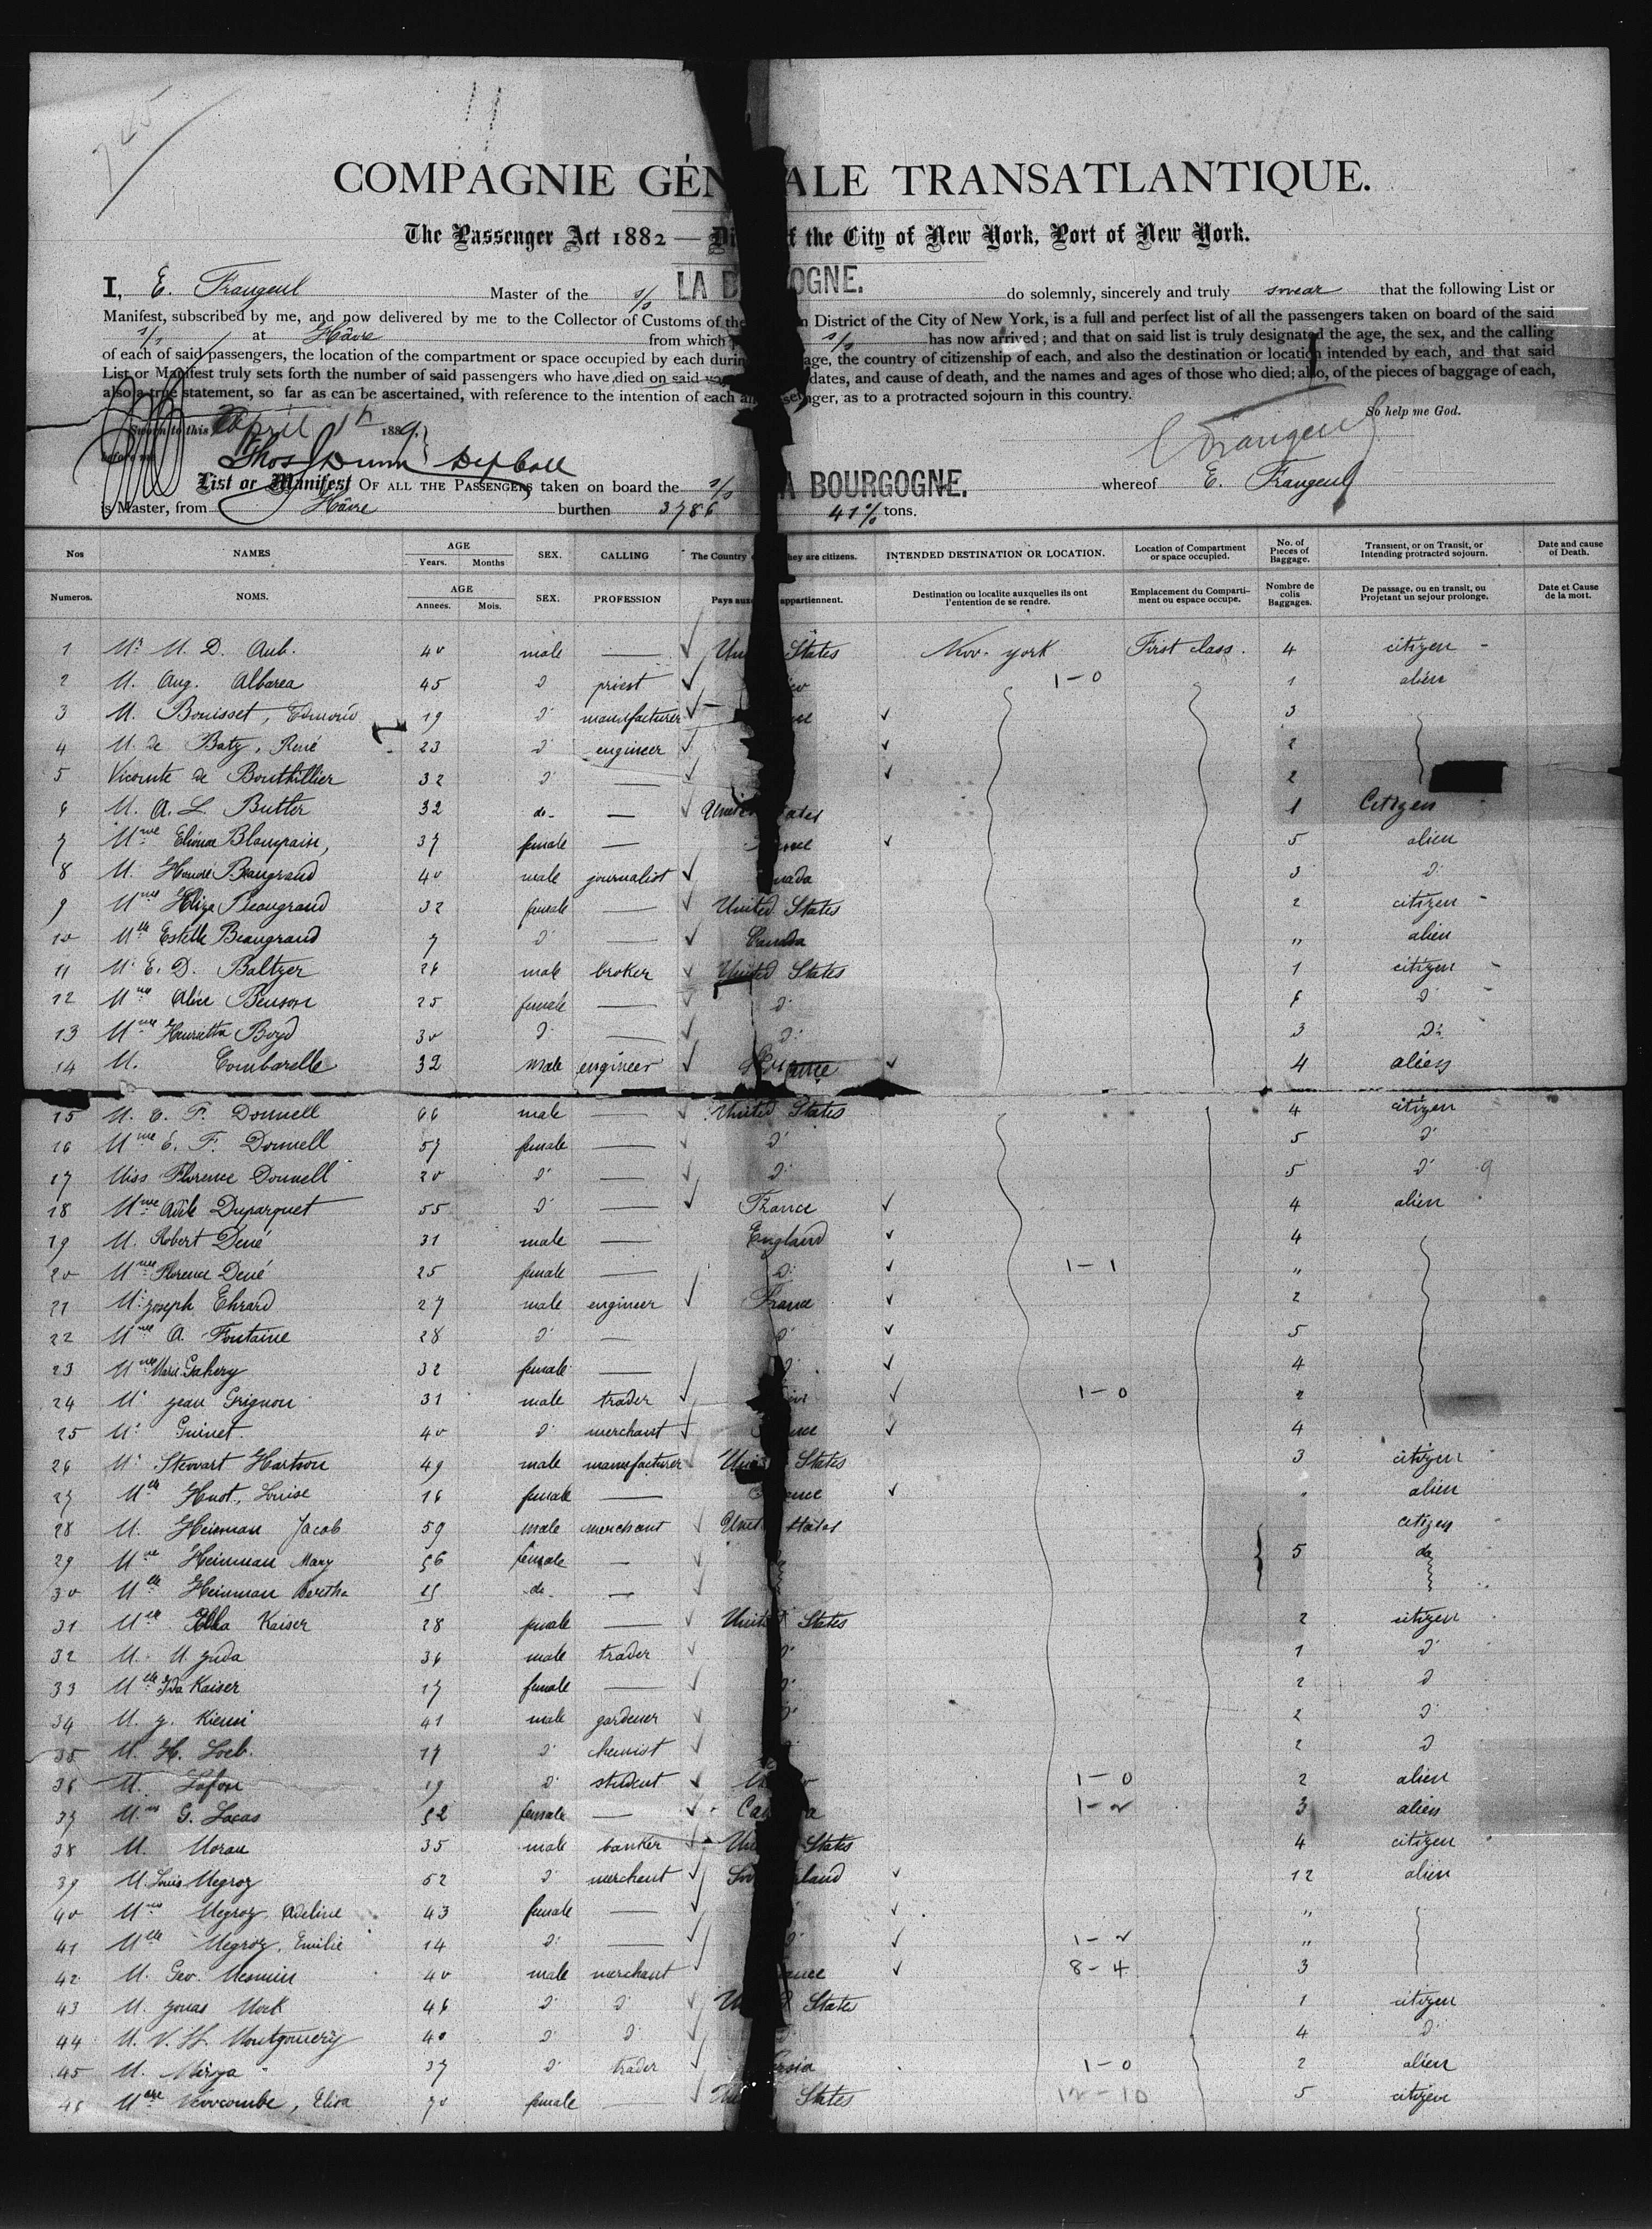 COMPAGNIE GÉN ALE TRANSATLANTIQUE.
The Passenger Act 1882 — Di f the City of New York, Port of New York.
I, E. Frangeul Master of the s/s LA B OGNE. do solemnly, sincerely and truly swear that the following List or
Manifest, subscribed by me, and now delivered by me to the Collector of Customs of the n District of the City of New York, is a full and perfect list of all the passengers taken on board of the said
s/s at Hâvre from which s/s has now arrived; and that on said list is truly designated the age, the sex, and the calling
of each of said passengers, the location of the compartment or space occupied by each durin age, the country of citizenship of each, and also the destination or location intended by each, and that said
List or Manifest truly sets forth the number of said passengers who have died on said dates, and cause of death, and the names and ages of those who died; also, of the pieces of baggage of each,
also a true statement, so far as can be ascertained, with reference to the intention of each nger, as to a protracted sojourn in this country.
So help me God.
Sworn to this April 1st 1889. Frangeul
before me Thos Dunn Dep Coll
List or Manifest OF ALL THE PASSENGERS taken on board the s/s A BOURGOGNE. whereof E. Frangeul
is Master, from Hâvre burthen 3786 41% tons.
Nos NAMES AGE Years. Months SEX. CALLING The Country hey are citizens. INTENDED DESTINATION OR LOCATION. Location of Compartment or space occupied. No. of Pieces of Baggage. Transient, or on Transit, or Intending protracted sojourn. Date and cause of Death.
Numeros. NOMS. AGE Annees. Mois. SEX. PROFESSION Pays aux appartiennent. Destination ou localite auxquelles ils ont l'entention de se rendre. Emplacement du Comparti- ment ou espace occupe. Nombre de colis Baggages. De passage, ou en transit, ou Projetant un sejour prolonge. Date et Cause de la mort.
1 Mr M. D. Aub. 40 male — Un States New-york First class. 4 citizen -
2 M. Aug. Albarea 45 d° priest 1-0 1 alien
3 M. Bouisset, Edmond 19 d° manufacturer 3
4 M. de Batz, René 23 d° engineer 2
5 Vicomte de Bouthillier 32 d° — 2
6 M. A. L. Butler 32 do- — Unite tates 1 Citizen
7 Mme Blangrain, 37 female — 5 alien
8 M. Honoré Beaugrand 40 male journalist nada 3 d°
9 Mme Eliza Beaugrand 32 female — United States 2 citizen -
10 Mlle Estelle Beaugrand 7 d° — Canada " alien
11 M. E. D. Baltzer 26 male broker United States 1 citizen -
12 Mme Alice Benson 25 female — d° 6 d°
13 Mme Henrietta Boyd 30 d° — d° 3 d°
14 M. Combarelle 32 male engineer France 4 alien
15 M. E. F. Donnell 66 male — United States 4 citizen
16 Mme E. F. Donnell 57 female — d° 5 d°
17 Miss Florence Donnell 20 d° — d° 5 d° 9
18 Mme Adèle Duparquet 55 d° — France 4 alien
19 M. Robert Dené 31 male — England 4
20 Mme Florence Dené 25 female — d° 1-1 "
21 M. Joseph Ehrard 27 male engineer France 2
22 Mme A. Fontaine 28 d° — d° 5
23 Mme Marie Gahery 32 female — d° 4
24 M. Jean Grignon 31 male trader 1-0 2
25 M. Guinet. 40 d° merchant 4
26 M. Stewart Hartson 49 male manufacturer Uni States 3 citizen
27 Mlle Huot, Louise 16 female — alien
28 M. Heinman Jacob 59 male merchant Unit States citizen
29 Mme Heinman Mary 56 female — 5 do
30 Mlle Heinman Bertha do — 
31 Mlle Ella Kaiser 28 female — Unit States 2 citizen
32 M. M Juda 36 male trader d° 1 d°
33 Mlle Ida Kaiser 17 female — d° 2 d°
34 M. J. 41 male gardener d° 2 d°
35 M. H. Loeb. 17 d° chemist 2 d°
36 M. Lafon 19 d° student 1-0 2 alien
37 Mme G. Lacas 52 female — Ca a 1-2 3 alien
38 M. Moran 35 male banker Un States 4 citizen
39 M. Louis Megroz 52 d° merchant land 12 alien
40 Mme Megroz, Adeline 43 female — "
41 Mlle Megroz, Emilie 14 d° — d° 1-2 "
42 M. Geo. Mesmin 40 male merchant 8-4 3
43 M. Jonas Mock 46 d° d° Un States 1 citizen
44 M. V. H. Montgomery 40 d° d° 4 d°
45 M. Mirza 37 d° trader ersia 1-0 2 alien
46 Mme Newcombe, Elisa 70 female — Un States 12-10 5 citizen